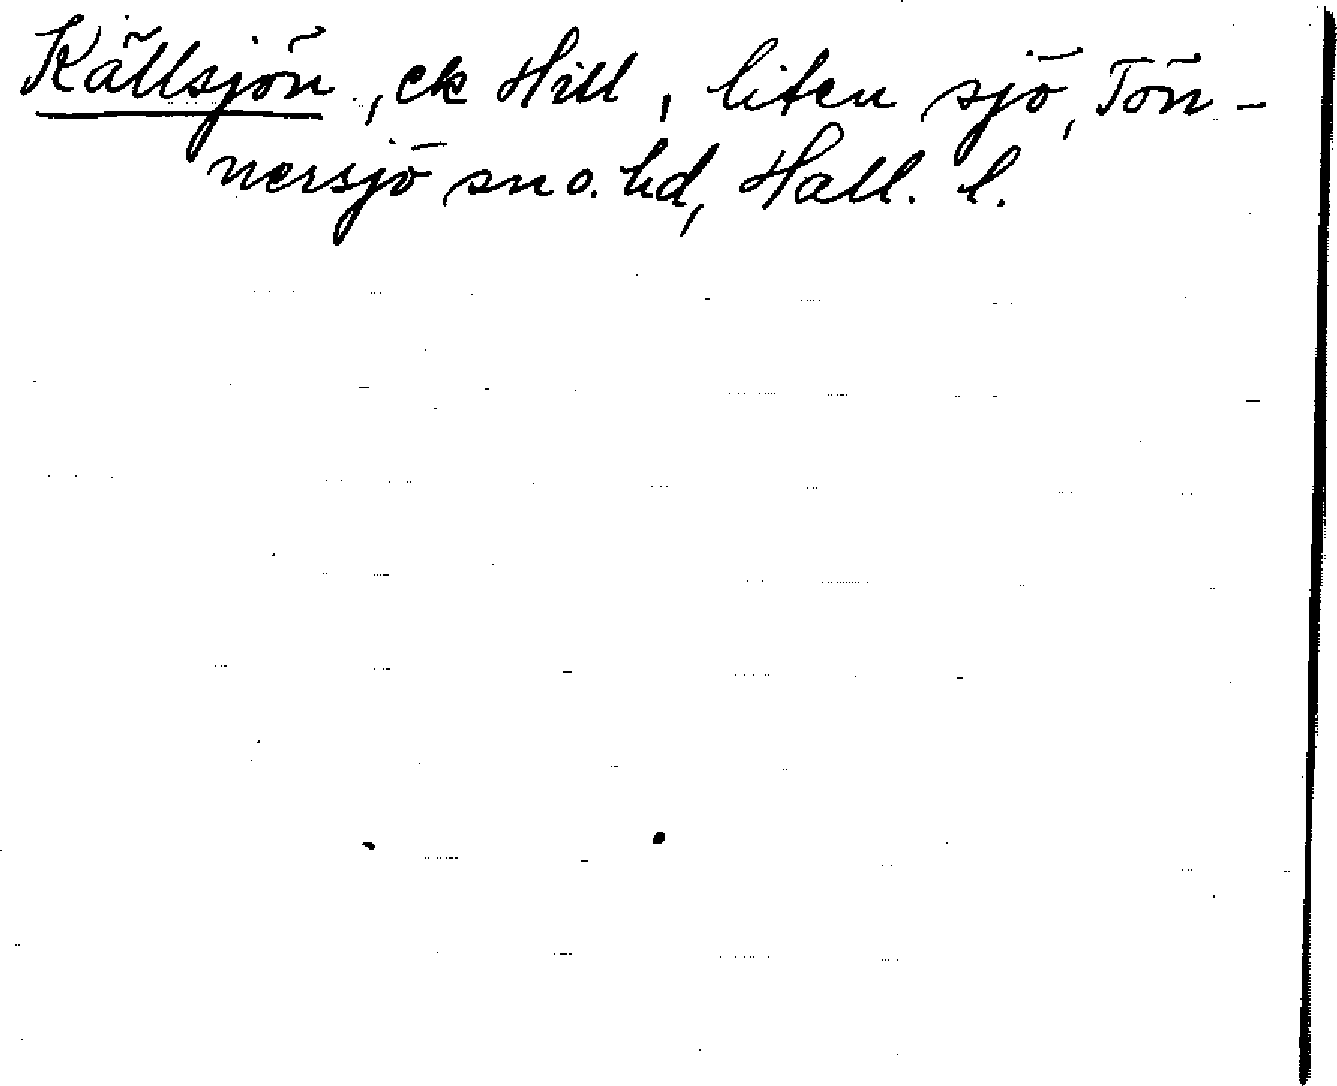 Källsjön, ek Hill, liten sjö, Tön-
nersjö sn o. hd, Hall. l.